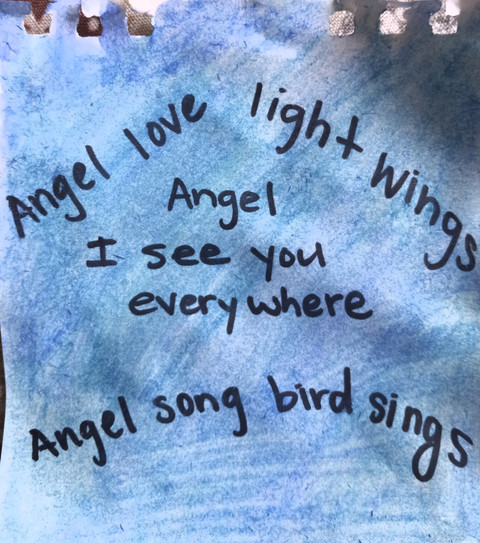 Angel love light wings
Angel
I see you
everywhere
Angel song bird sings